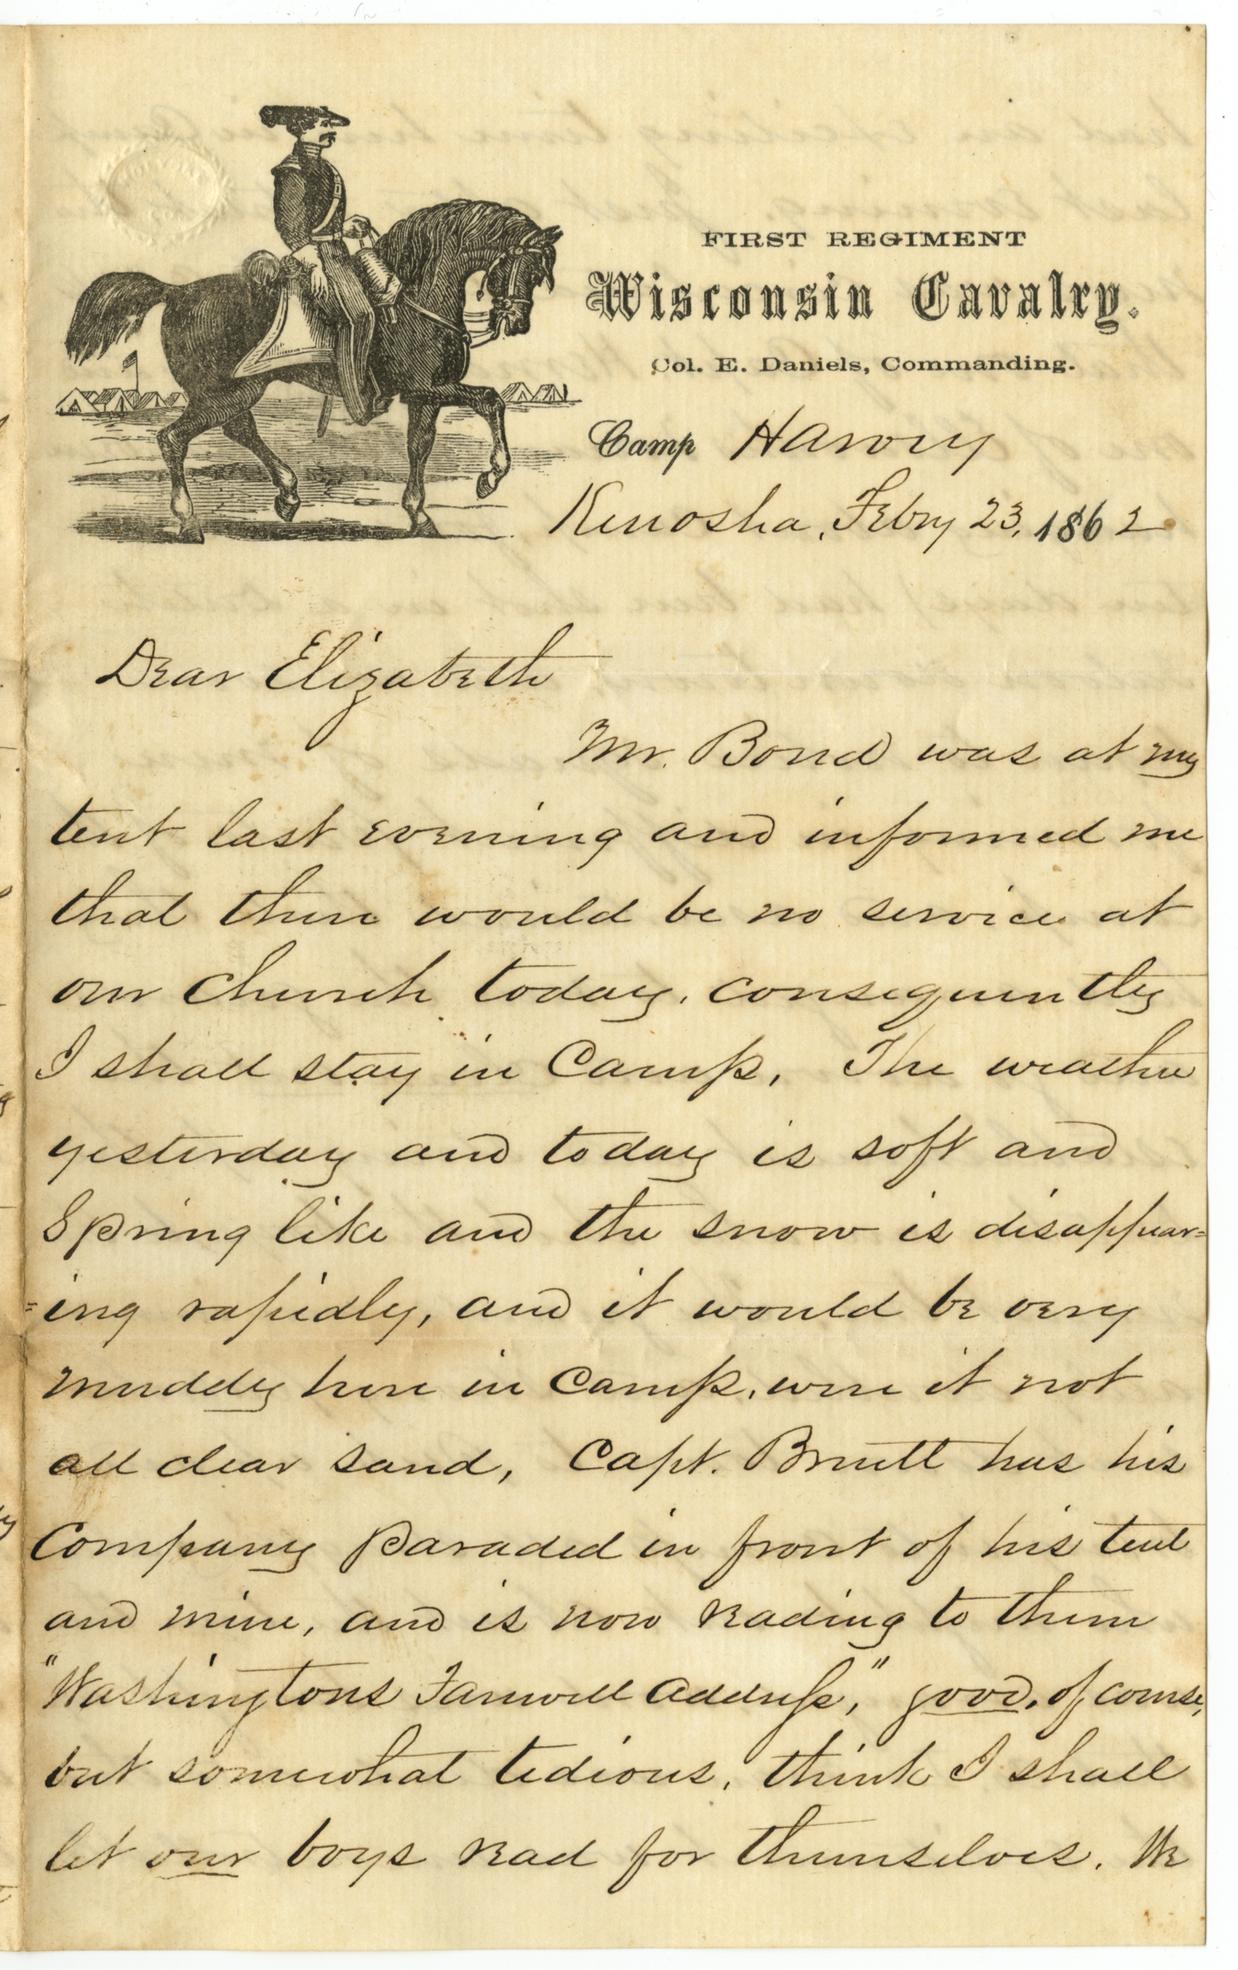 FIRST REGIMENT
Wisconsin Cavalry.
Col. E. Daniels, Commanding.
Camp Harvey
Kenosha, Febry 23, 1862
Dear Elizabeth
Mr. Bond was at my
tent last evening and informed me
that there would be no service at
our church today, consequently
I shall stay in Camp. The weather
yesterday and today is soft and
Spring like and the snow is disappear=
=ing rapidly, and it would be very
muddy here in Camp, were it not
all clear sand, Capt. Bruett has his
Company Paraded in front of his tent
and mine, and is now Reading to them
"Washingtons Farwell Address," good, of course,
but somewhat tedious, think I shall
let our boys Read for themselves. We